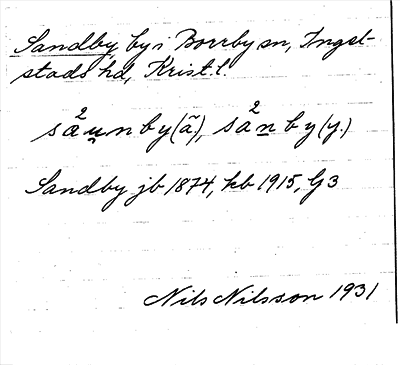 Sandby, by i Borrby sn, Ingel-
stads hd, Krist.l.
sa²u̯nby(ã.), sa²nby(y.)
Sandby jb 1874, kb 1915, G3
Nils Nilsson 1931